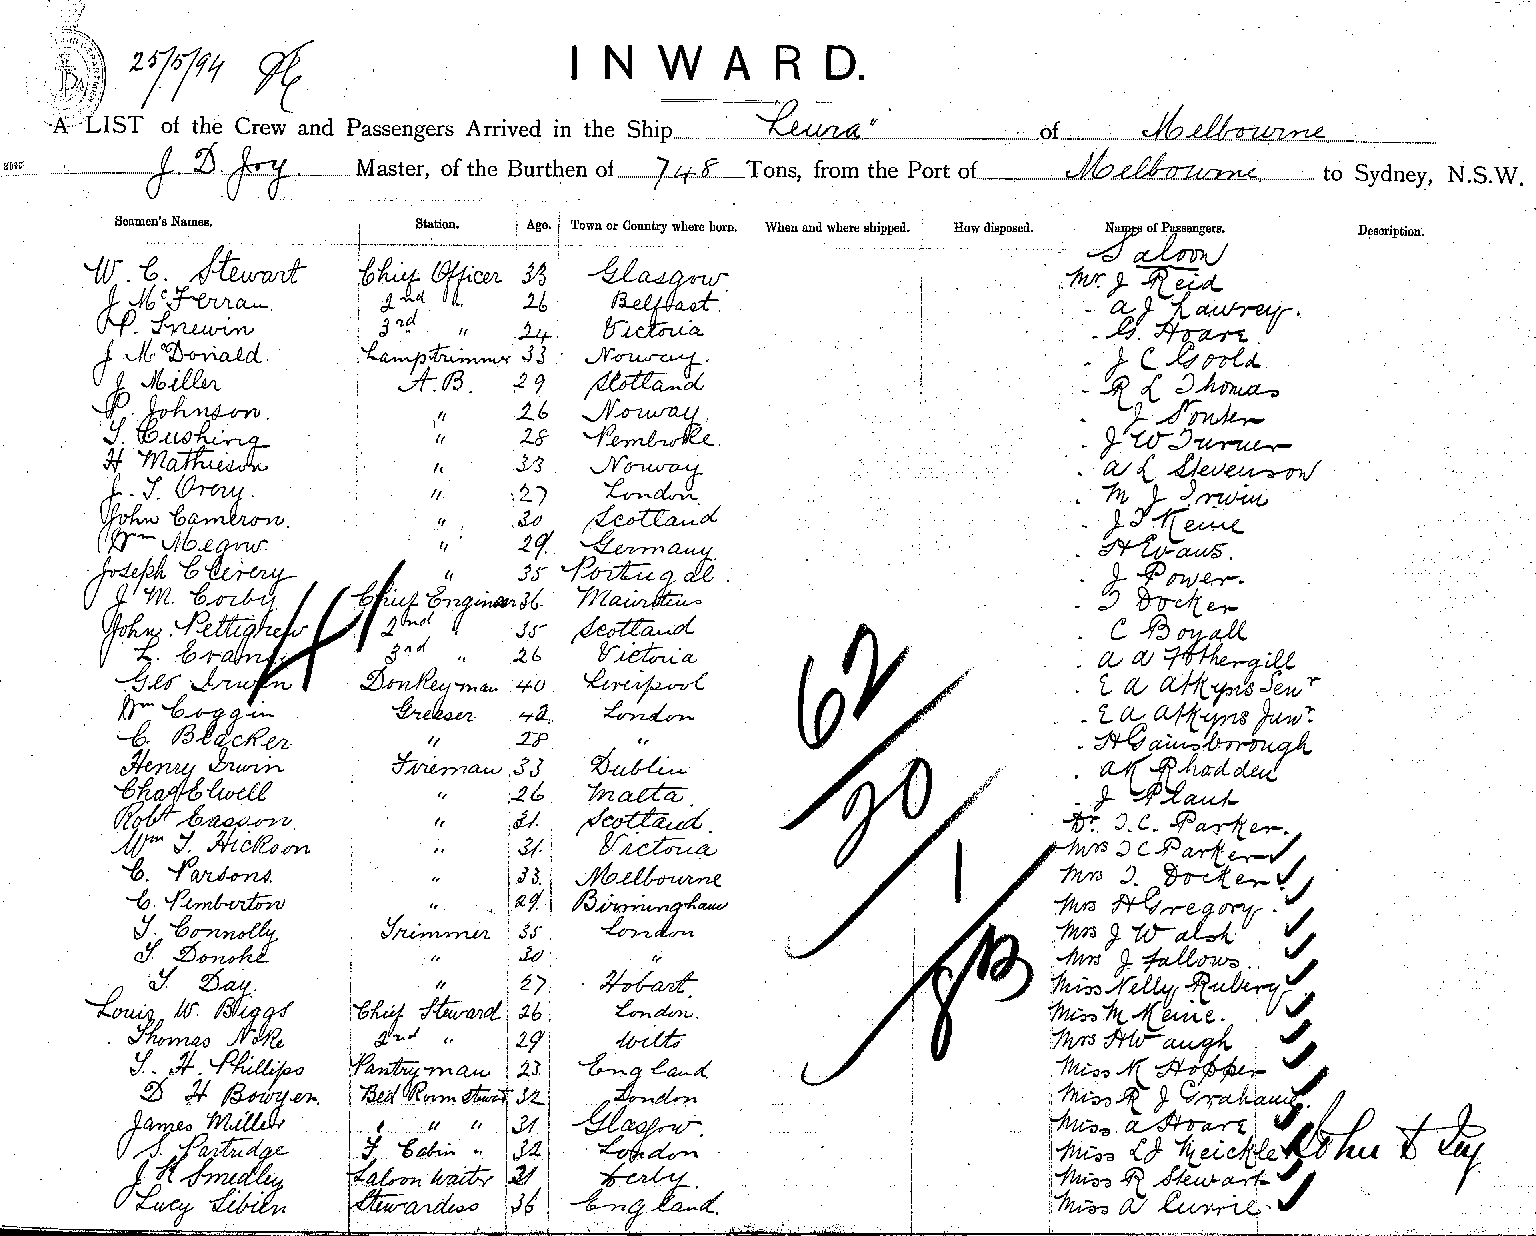 25/5/94
INWARD.
A LIST of the Crew and Passengers Arrived in the Ship "Leura" of Melbourne
J. D. Joy. Master, of the Burthen of 748 Tons, from the Port of Melbourne to Sydney, N.S.W.
Seamen's Names. Station. Age. Town or Country where born. When and where shipped. How disposed. Names of Passengers. Description.
Saloon
W. C. Stewart Chief Officer 33 Glasgow. Mr. J Reid
J McFerran 2nd " 26 Belfast. " A J Lawrey.
P. Snewin 3rd " 24 Victoria " G. Hoare
J McDonald. Lamptrimmer 33 Norway. " J C Goold
J Miller A.B. 29 Scotland " R L Thomas
P. Johnson. " 26 Norway " J
T. Cushing " 28 Pembroke. " J W Turner
H Mathieson " 33 Norway " A L Stevenson
J. T. Overy. " 27 London " M J Irwin
John Cameron. " 30 Scotland " J T Keine
Wm Megow. " 29 Germany " H Evans.
Joseph " 35 Portugal. " J Power.
J M. Corby Chief Engineer 36 Mauritius " T Docker
John Pettigrew 2nd " 35 Scotland " C Boyall
L. Evans 3rd " 26 Victoria " A A Fothergill
Geo Irwin Donkeyman 40 Liverpool " E A Atkyns Senr
Wm Coggin Greaser 42 London " E A Atkyns Junr.
C. Blacker " 28 " " H Gainsborough
Henry Irwin Fireman 33 Dublin " A K Rhodden
Chas Elwell " 26 Malta. " J Plant
Robt Casson " 31. Scotland. Dr. T. C. Parker.
Wm T. Hickson " 31 Victoria Mrs T C Parker
C. Parsons " 33. Melbourne Mrs T. Docker
C. Pemberton " 29 Birmingham Mrs H Gregory.
T. Connolly Trimmer 35 London Mrs J Walsh
T. Donohe " 30 " Mrs J Fallows.
T. Day. " 27 Hobart. Miss Nelly Rubery
Louis W. Biggs Chief Steward 26 London. Miss M Keine.
Thomas Noke 2nd " 29 Wilts Mrs H Waugh
T. H. Phillips Pantryman 23 England Miss K Hopper
D H Bowyer. Bed Room Stewd 32 London Miss R J Graham.
James Miller " " " 31 Glasgow. Miss A Hoare
S. Partridge F. Cabin " 32 London Miss L J Meickle
J H Smedley Saloon Waiter 31 Derby. Miss R Stewart
Lucy Sibien Stewardess 36 England. Miss A Currie.
41
62
20
1
83
John D Joy